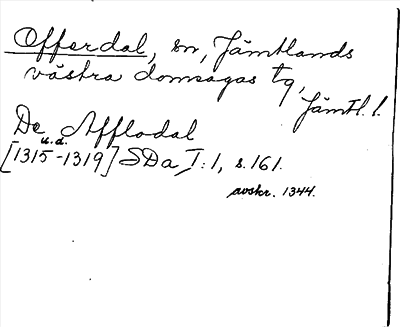 Offerdal, sn, Jämtlands
västra domsagas tg,
Jämtl. l.
De Afflodal
u.d.
[1315-1319] SDa I:1, s.161.
avskr. 1344.